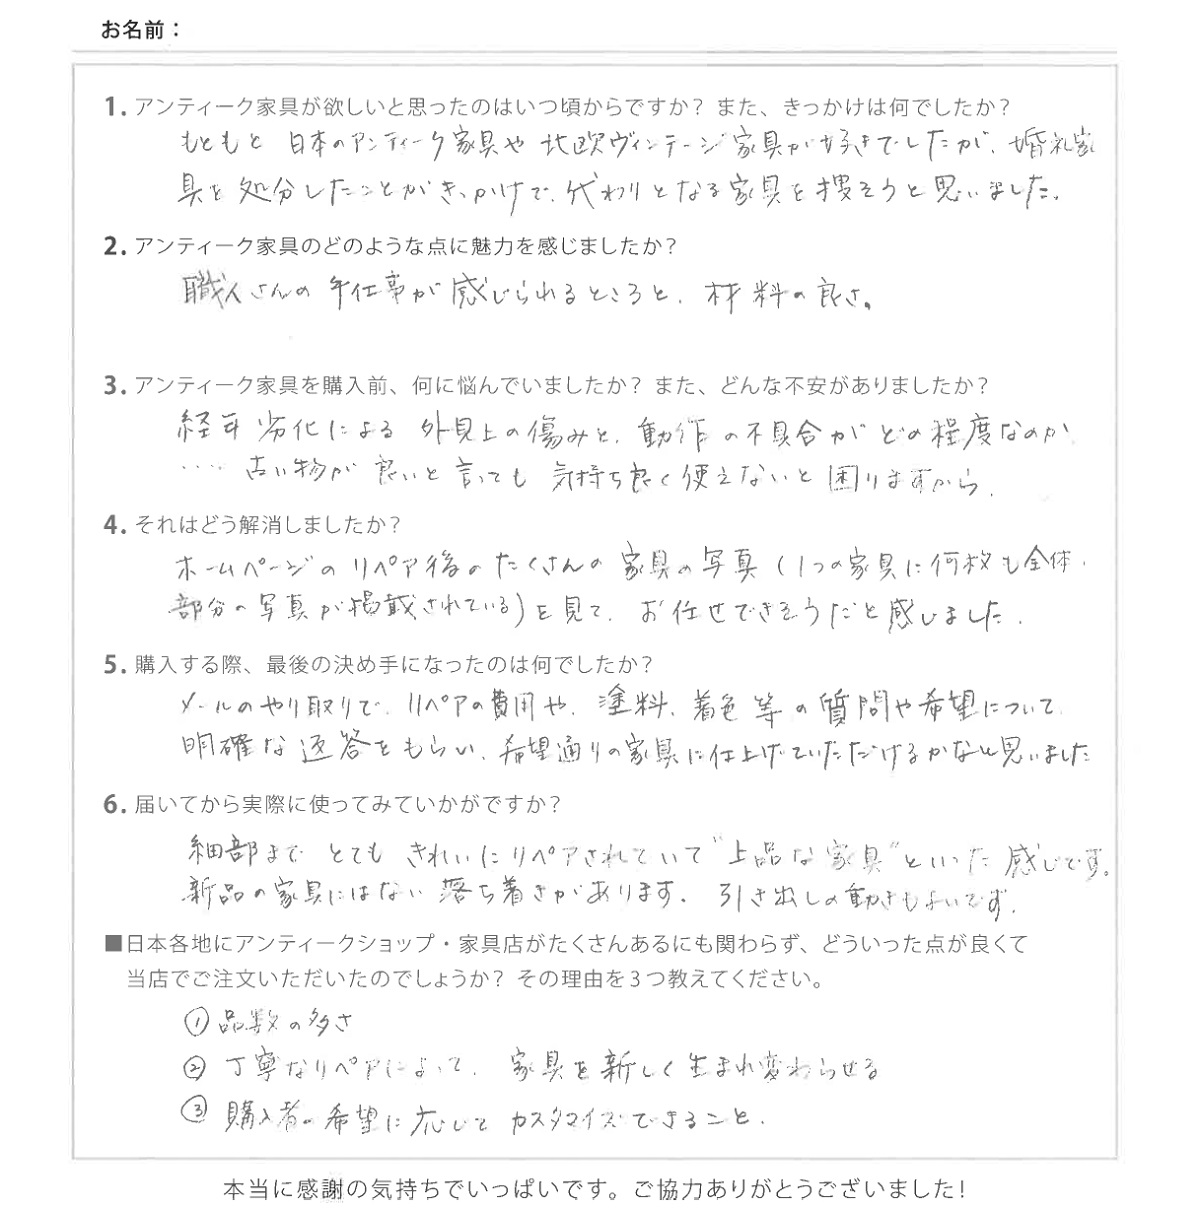 お名前：
1. アンティーク家具が欲しいと思ったのはいつ頃からですか？また、きっかけは何でしたか？
もともと 日本のアンティーク家具や 北欧ヴィンテージ家具が好きでしたが、婚礼家
具を処分したことがきっかけで、代わりとなる家具を捜そうと思いました。
2. アンティーク家具のどのような点に魅力を感じましたか？
職人さんの手仕事が感じられるところと、材料の良さ。
3. アンティーク家具を購入前、何に悩んでいましたか？また、どんな不安がありましたか？
経年劣化による外見上の傷みと、動作の不具合がどの程度なのか
…‥古い物が良いと言っても気持ち良く使えないと困りますから。
4. それはどう解消しましたか？
ホームページのリペア後のたくさんの家具の写真（1つの家具に何枚も全体・
部分の写真が掲載されている）を見て、お任せできそうだと感じました。
5. 購入する際、最後の決め手になったのは何でしたか？
メールのやり取りで、リペアの費用や、塗料、着色等の質問や希望について
明確な返答をもらい、希望通りの家具に仕上げていただけるかなと思いました
6. 届いてから実際に使ってみていかがですか？
細部まで とても きれいにリペアされていて"上品な家具"といった感じです。
新品の家具にはない落ち着きがあります。引き出しの動きもよいです。
■日本各地にアンティークショップ・家具店がたくさんあるにも関わらず、どういった点が良くて
当店でご注文いただいたのでしょうか？その理由を３つ教えてください。
①品数の多さ
②丁寧なリペアによって、家具を新しく生まれ変わらせる
③購入者の希望に応じてカスタマイズできること。
本当に感謝の気持ちでいっぱいです。ご協力ありがとうございました！